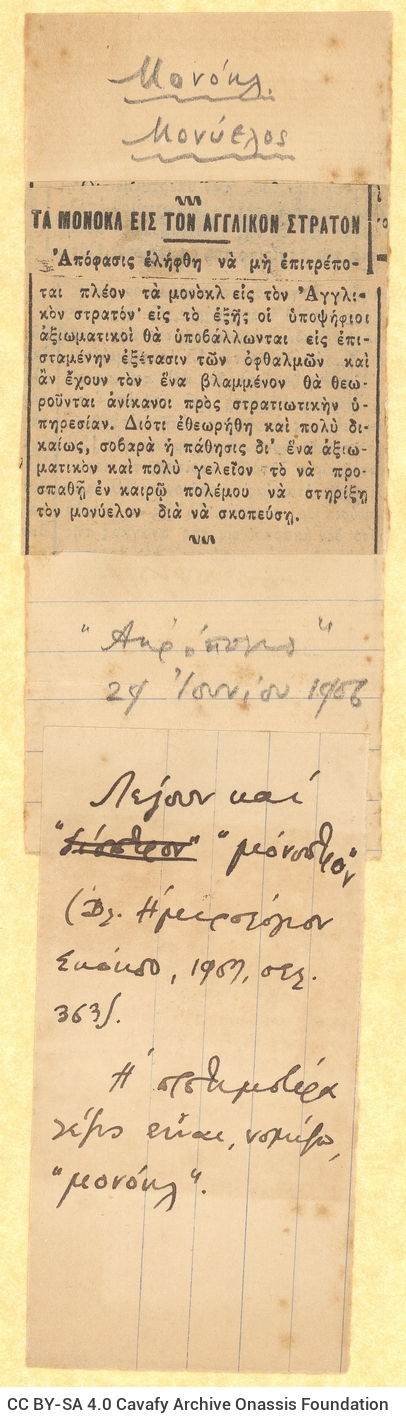 Μονόκλ.
Μονύελος
ΤΑ ΜΟΝΟΚΛ ΕΙΣ ΤΟΝ ΑΓΓΛΙΚΟΝ ΣΤΡΑΤΟΝ
Ἀπόφασις ἐλήφθη νὰ μὴ ἐπιτρέπο-
ται πλέον τὰ μονὸκλ εἰς τὸν Ἀγγλι-
κὸν στρατόν· εἰς τὸ ἑξῆς οἱ ὑποψήφιοι
ἀξιωματικοὶ θὰ ὑποβάλλωνται εἰς ἐπι-
σταμένην ἐξέτασιν τῶν ὀφθαλμῶν καὶ
ἂν ἔχουν τὸν ἕνα βλαμμένον θὰ θεω-
ροῦνται ἀνίκανοι πρὸς στρατιωτικὴν ὑ-
πηρεσίαν. Διότι ἐθεωρήθη καὶ πολὺ δι-
καίως, σοβαρὰ ἡ πάθησις δι' ἕνα ἀξιω-
ματικὸν καὶ πολὺ γελεῖον τὸ νὰ προ-
σπαθῇ ἐν καιρῷ πολέμου νὰ στηρίξῃ
τὸν μονύελον διὰ νὰ σκοπεύσῃ.
"Ακρόπολις"
24 Ἰουνίου
Λέγουν καὶ
"μόνοπτρον"
(Βλ. Ἡμερολόγιον
Σκόκου, 1907, σελ.
363).
Ἡ
λέξις εἶναι, νομίζω,
"μονόκλ".
CC BY-SA 4.0 Cavafy Archive Onassis Foundation